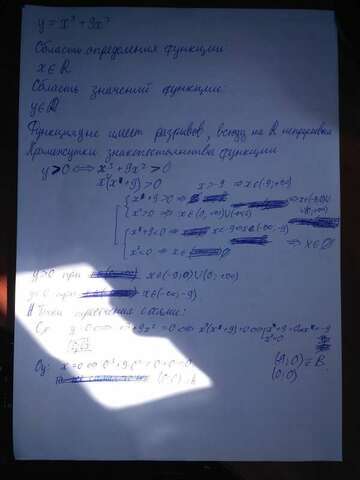 y = x³ + 9x²
Область определения функции
x ∈ R
Область значений функции:
y ∈ R
Функция не имеет разрывов, всюду на R непрерывна
Промежутки знакопостоянства функции
y > 0 ⟺ x³ + 9x² > 0
x²(x + 9) > 0
x + 9 > 0 ⇒ x > -9 ⇒ x ∈ (-9; +∞)
x² > 0 ⇒ x ∈ (-∞, 0) ∪ (0; +∞)
x + 9 < 0 ⇒ x < -9 ⇒ x ∈ (-∞; -9)
x² < 0 ⇒ x ∈ ⇒ x ∈ ∅
y > 0 при x ∈ (-9; 0) ∪ (0; +∞)
y < 0 при x ∈ (-∞; -9)
Точки пересечения с осями:
Ox: y = 0 ⟺ x³ + 9x² = 0 ⟺ x²(x + 9) = 0 ⟺ x + 9 = 0 ⟺ x = -9
x² = 0
Oy: x = 0 ⟺ 0³ + 9·0² = 0 + 0 = 0
(-9; 0) = B
(0; 0)